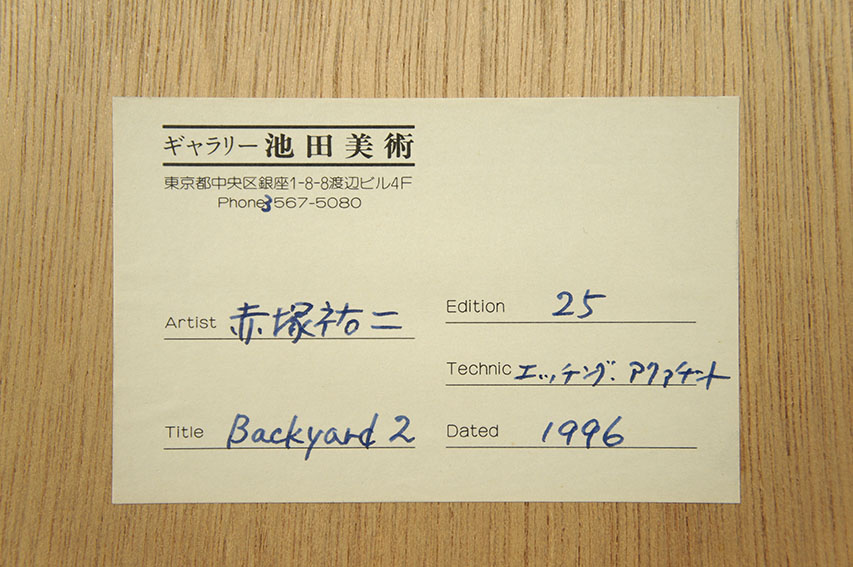 ギャラリー 池田美術
東京都中央区銀座1-8-8渡辺ビル4F
Phone 3567-5080
Artist 赤塚祐二
Title Backyard 2
Edition 25
Technic エッチング. アクアチント
Dated 1996